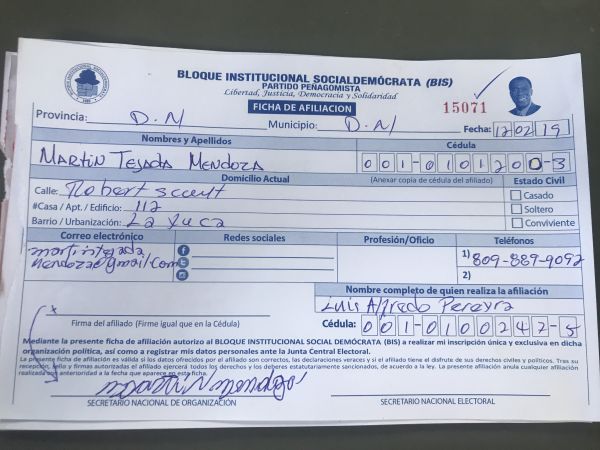 BLOQUE INSTITUCIONAL SOCIALDEMÓCRATA (BIS)
PARTIDO PEÑAGOMISTA
Libertad, Justicia, Democracia y Solidaridad
FICHA DE AFILIACION
15071
Provincia: D.N Municipio: D.N Fecha: 12 02 19
Nombres y Apellidos Cédula
MARTIN TEJADA MENDOZA 001-0101200-3
Domicilio Actual (Anexar copia de cédula del afiliado) Estado Civil
Calle: Robert scout Casado
#Casa / Apt. / Edificio: 112 Soltero
Barrio / Urbanización: La Yuca Conviviente
Correo electrónico Redes sociales Profesión/Oficio Teléfonos
martintejada 1) 809-889-9092
Mendoza@gmail.com 2)
Nombre completo de quien realiza la afiliación
Luis Alfredo Pereyra
Firma del afiliado (Firme igual que en la Cédula) Cédula: 001-0100242-5
Mediante la presente ficha de afiliación autorizo al BLOQUE INSTITUCIONAL SOCIAL DEMÓCRATA (BIS) a realizar mi inscripción única y exclusiva en dicha
organización política, así como a registrar mis datos personales ante la Junta Central Electoral.
La presente ficha de afiliación es válida si los datos ofrecidos por el afiliado son correctos, las declaraciones veraces y si el afiliado tiene el disfrute de sus derechos civiles y políticos. Tras su
recepción, sello y firmas autorizadas el afiliado ejercerá todos los derechos y los deberes estatutariamente sancionados, de acuerdo a la ley. La presente afiliación anula cualquier afiliación
realizada con anterioridad a la fecha que aparece en esta ficha.
SECRETARIO NACIONAL DE ORGANIZACIÓN SECRETARIO NACIONAL ELECTORAL